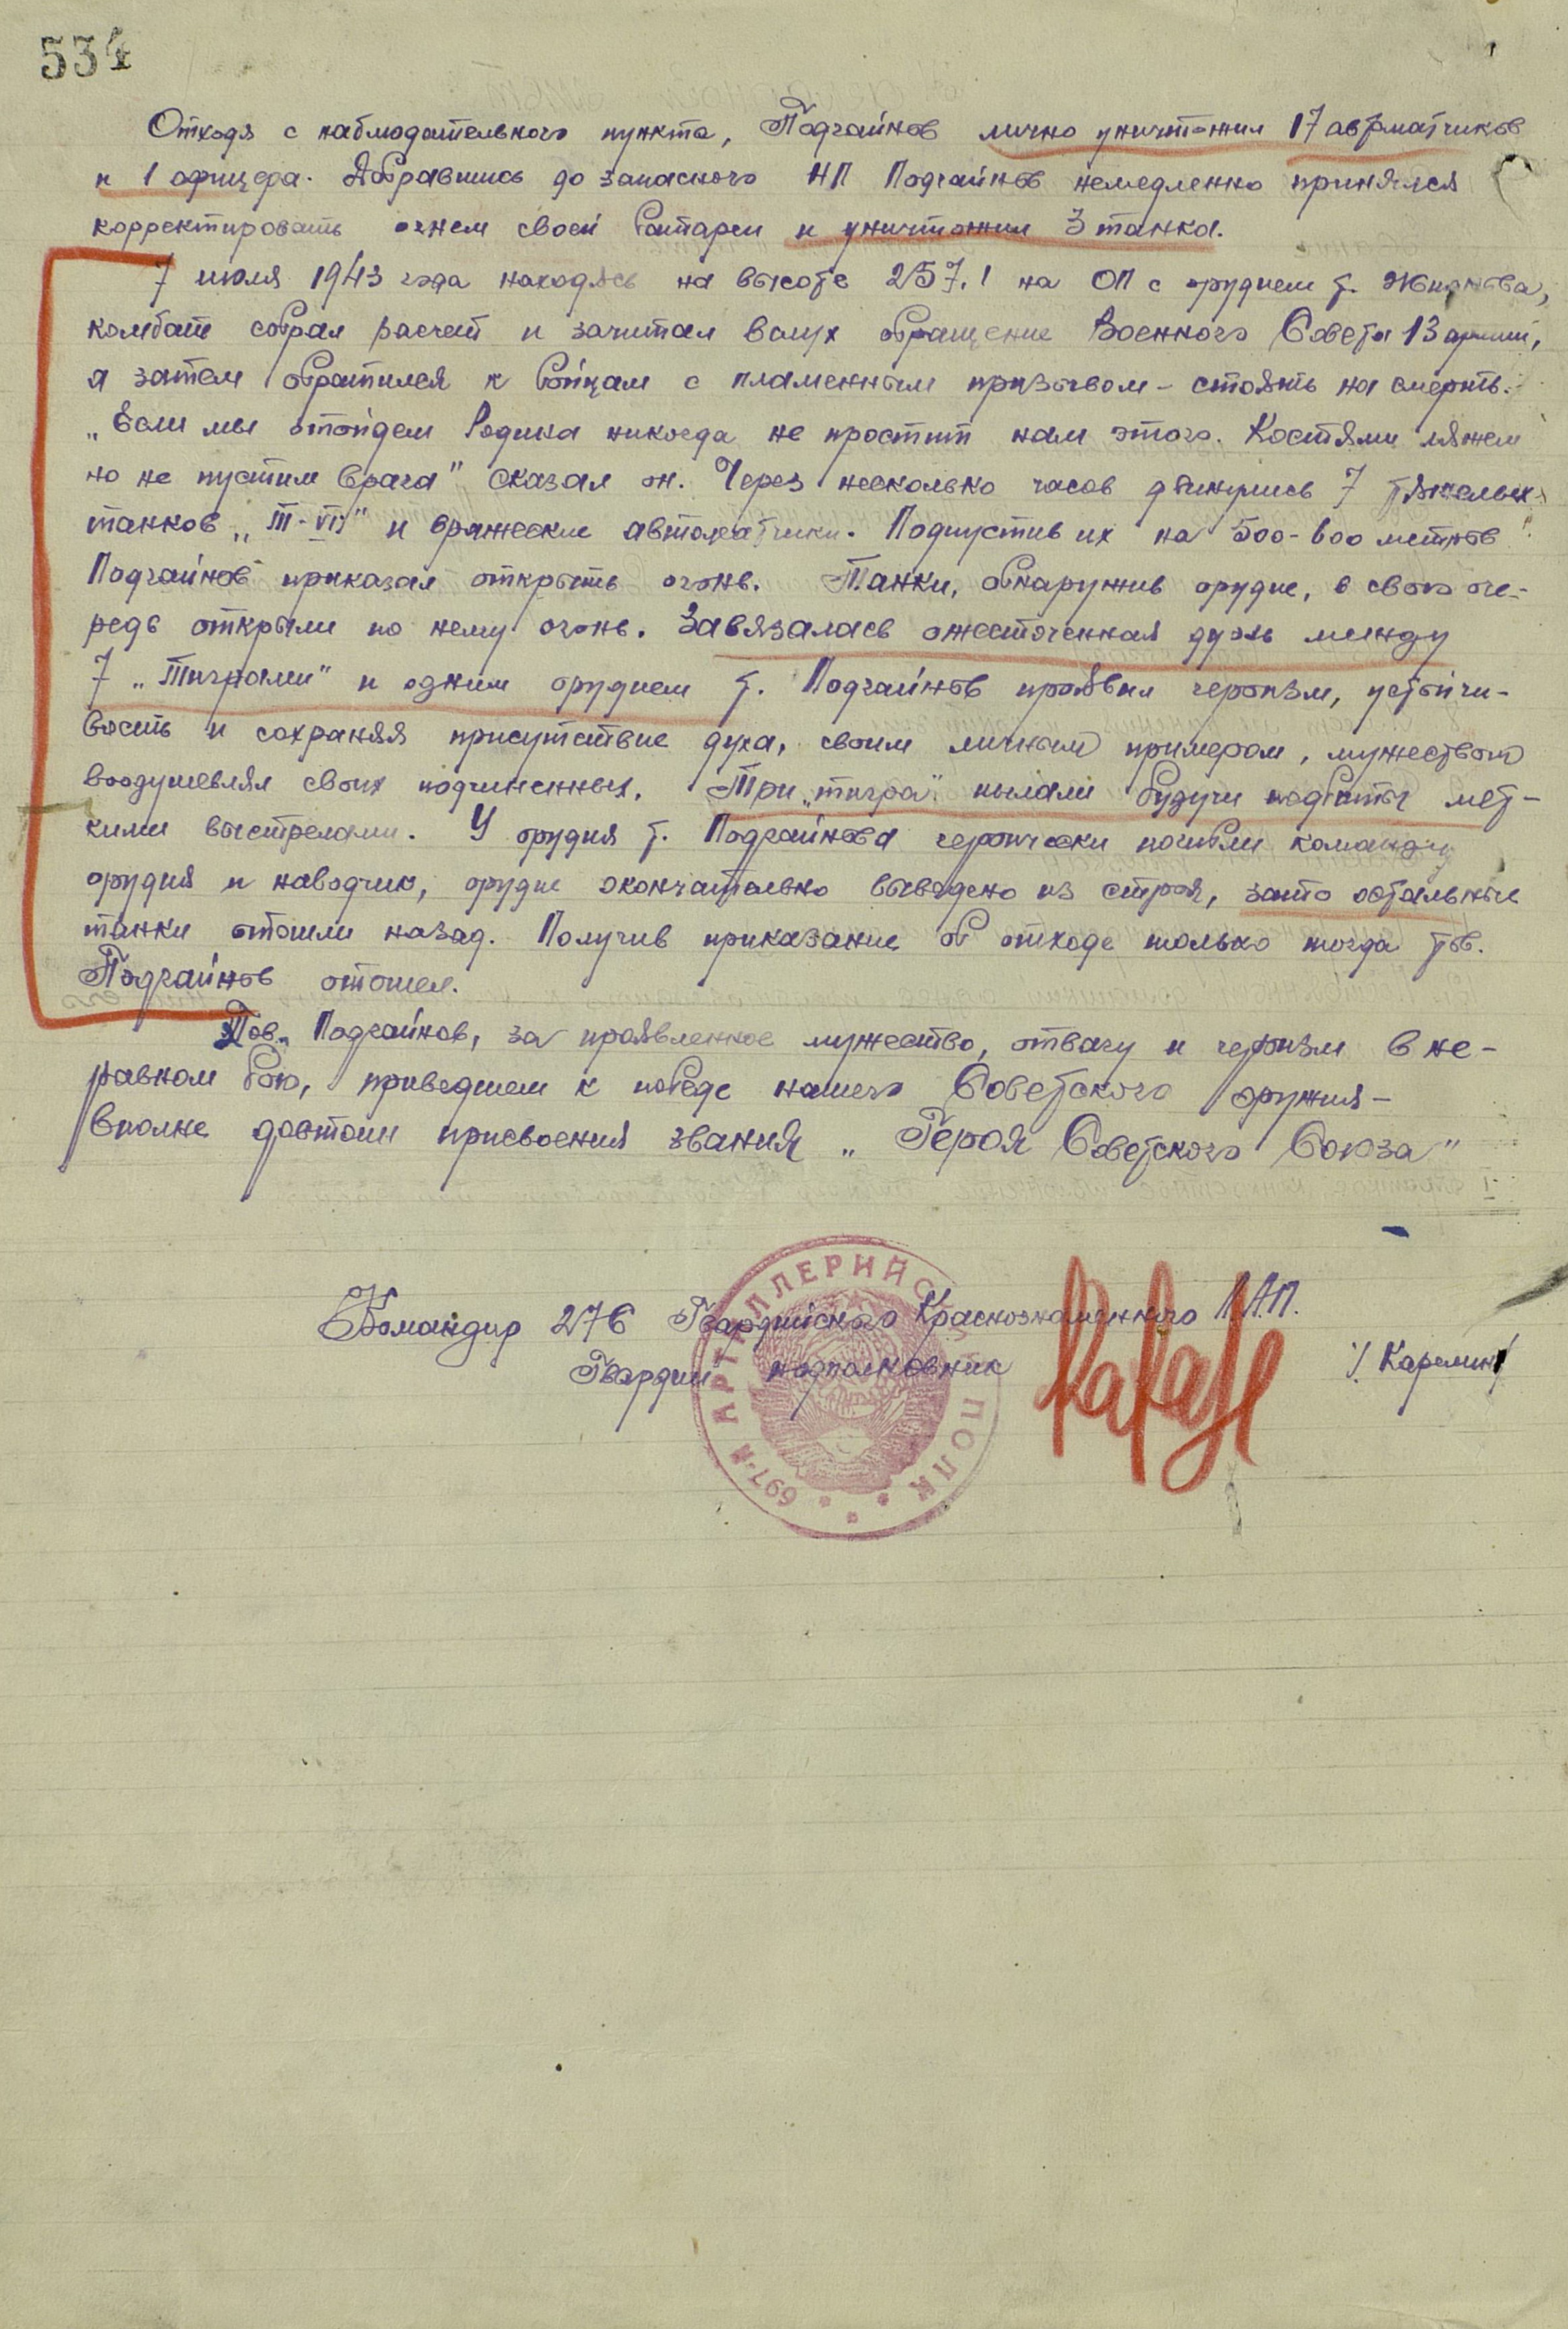 534
Отходя с наблюдательного пункта, Подгайнов лично уничтожил 17 автоматчиков
и 1 офицера. Добравшись до запасного НП Подгайнов немедленно принялся
корректировать огнем своей батареи и уничтожил 3 танка.
7 июля 1943 года находясь на высоте 257,1 на ОП с орудием т.
комбат собрал расчет и зачитал вслух обращение Военного Совета 13 армии,
а затем обратился к бойцам с пламенным призывом – стоять на смерть.
„Если мы отойдем Родина никогда не простит нам этого. Костями ляжем
но не пустим врага" сказал он. Через несколько часов двинулись 7 тяжелых
танков „Т-VI" и вражеские автоматчики. Подпустив их на 500-600 метров
Подгайнов приказал открыть огонь. Танки, обнаружив орудие, в свою оче-
редь открыли по нему огонь. Завязалась ожесточенная дуэль между
7 „Тиграми" и одним орудием т. Подгайнов проявил героизм, устойчи-
вость и сохраняя присутствие духа, своим личным примером, мужеством
воодушевлял своих подчиненных. Три „тигра" пылали будучи подбиты мет-
кими выстрелами. У орудия т. Подгайнова героически погибли командир
орудия и наводчик, орудие окончательно выведено из строя, зато остальные
танки отошли назад. Получив приказание об отходе только тогда тов.
Подгайнов отошел.
Тов. Подгайнов, за проявленное мужество, отвагу и героизм в не-
равном бою, приведшем к победе нашего Советского оружия –
вполне достоин присвоения звания „Героя Советского Союза"
Командир 276 Гвардейского Краснознаменного ЛАП.
Гвардии подполковник
/ Карелин /
697-й АРТИЛЛЕРИЙСКИЙ ПОЛК